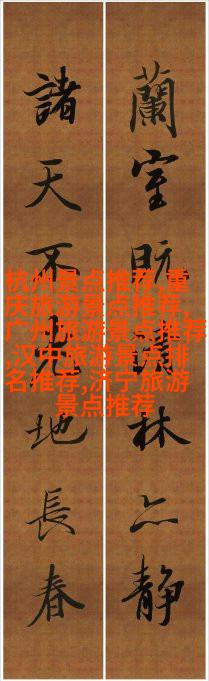 蘭室既林亦靜
諸天不老地長春
杭州景点推荐,重
庆旅游景点推荐,
广州旅游景点推荐
,汉中旅游景点排
名推荐,济宁旅游
景点推荐